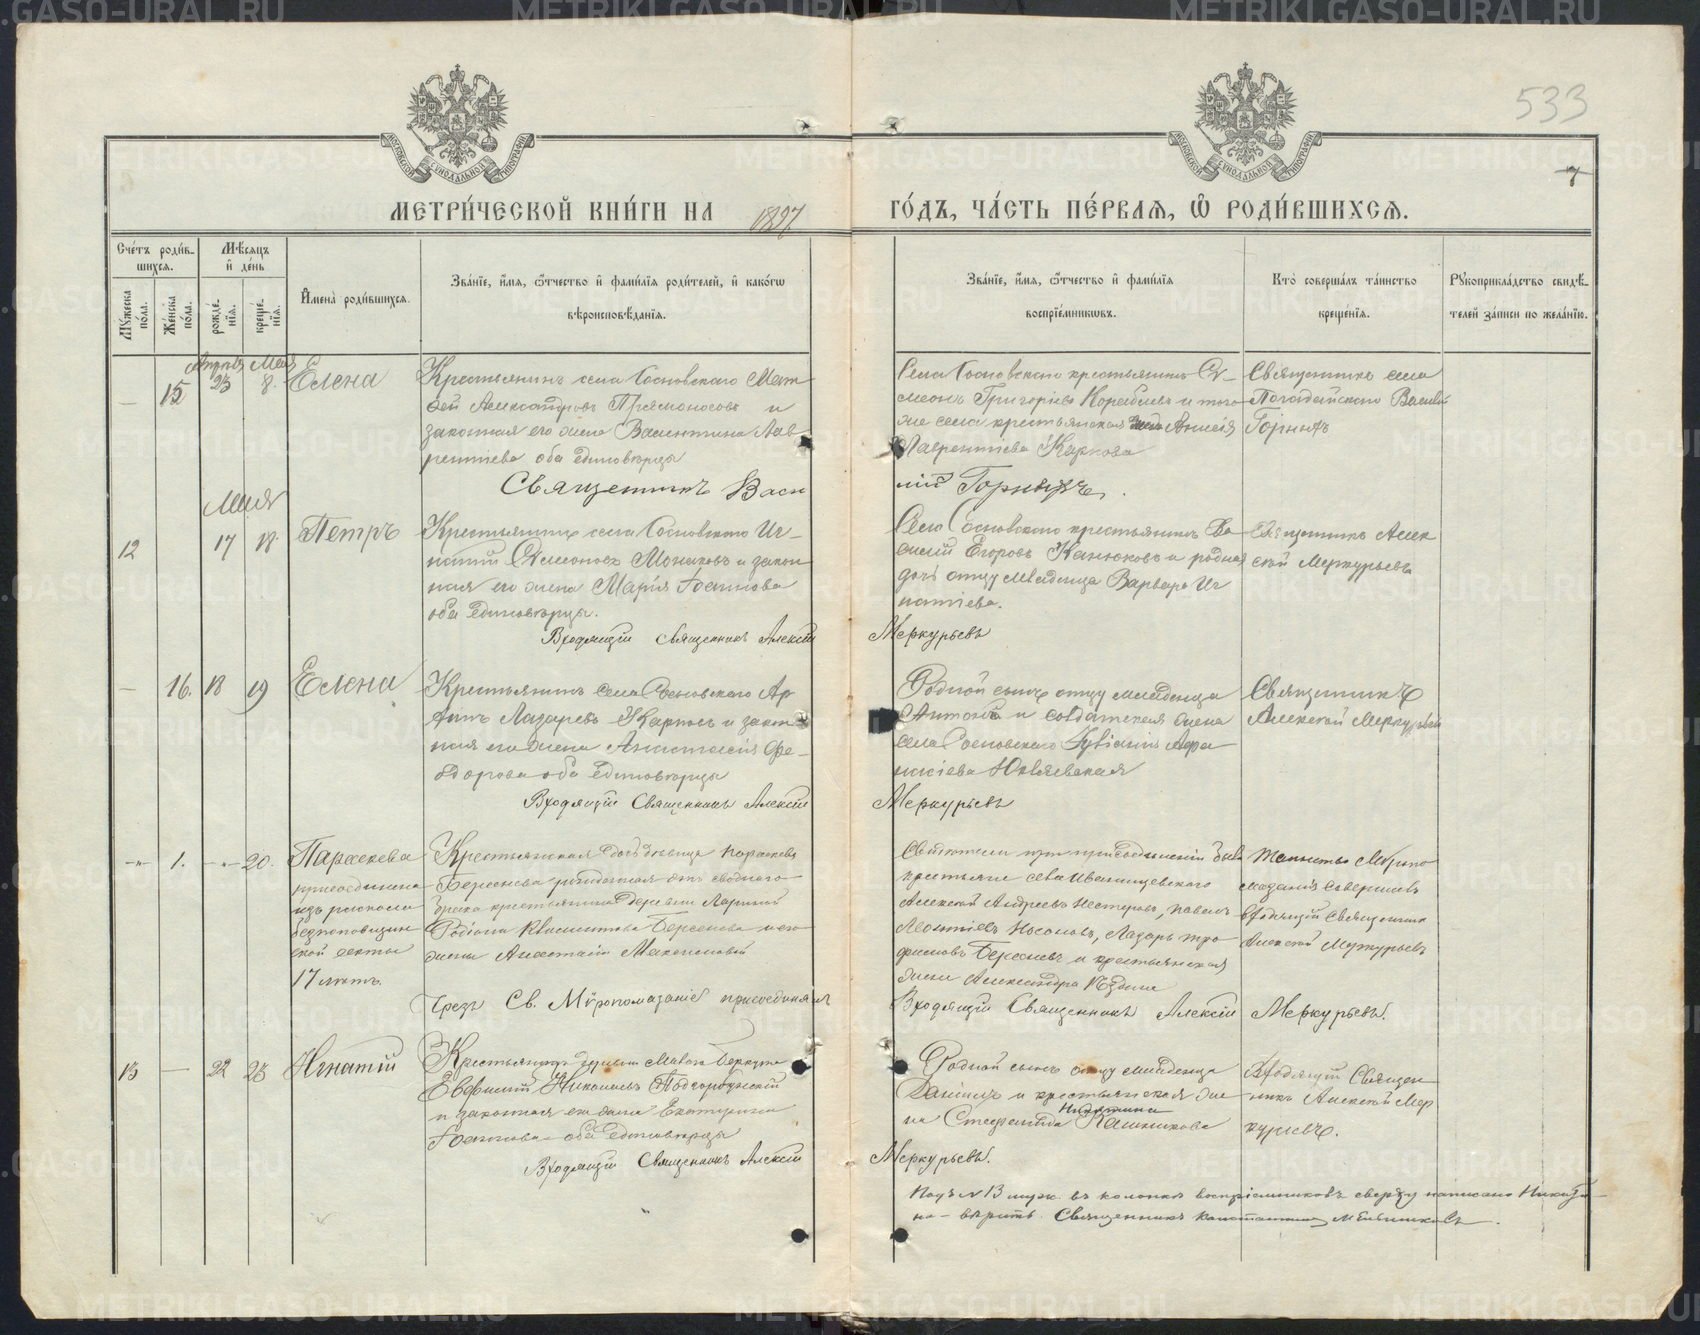 533
7
МОСКОВСКОЙ СѴНОДАЛЬНОЙ ТИПОГРАФІИ
МОСКОВСКОЙ СѴНОДАЛЬНОЙ ТИПОГРАФІИ
МЕТРИ́ЧЕСКОЙ КНИ́ГИ НА 1897 ГО́ДЪ, ЧА́СТЬ ПЕ́РВАЯ, Ѽ РОДИ́ВШИХСЯ.
Сче́тъ роди́в-
шихся.
Мѣ́сяцъ
и҆ де́нь
Мꙋжеска
по́ла.
Же́нска
по́ла.
рожде́-
нїя.
креще́-
нїя.
И҆мена̀ роди́вшихся.
Зва́нїе, и҆́мя, ѻ҆́тчество и҆ фами́лїя роди́телей, и҆ како́гѡ
вѣроисповѣ́данїя.
Зва́нїе, и҆́мя, ѻ҆́тчество и҆ фами́лїя
воспрїе́мникѡвъ.
Кто̀ соверша́лъ та́инство
креще́нїя.
Рꙋкоприкла́дство свидѣ́-
телей за́писи по жела́нїю.
Апрѣль Мая
— 15 23 8. Елена
Крестьянинъ села Сосновскаго Мат
фей Александровъ Прямоносовъ и
законная его жена Валентина Лав-
рентіева оба единовѣрцы
Священникъ Васи
Села Сосновскаго крестьянинъ Си-
меонъ Григорьевъ Коробьевъ и того
же села крестьянская Анисія
Лаврентіева Карпова
лій Горныхъ.
Священникъ села
Василій
Горныхъ
Мая
12 17 18 Петръ
Крестьянинъ села Сосновскаго Иг-
натій Симеоновъ Монаковъ и закон
ная его жена Марія Іоаннова
оба единовѣрцы.
Входящій священникъ Алексій
Села Сосновскаго крестьянинъ Ва-
силій Егоровъ Канюковъ и родная
дочь отцу младенца Варвара Иг
натіева.
Меркурьевъ
Священникъ Алек
сѣй Меркурьевъ
— 16. 18 19 Елена
Крестьянинъ села Сосновскаго
Лазаревъ Карповъ и закон
ная его жена Анастасія Ѳе-
одорова оба единовѣрцы
Входящій Священникъ Алексій
Родной сынъ отцу младенца
Антонъ и солдатская жена
села Сосновскаго Афа
насіева
Меркурьевъ
Священникъ
Алексѣй Меркурьевъ
—„— 1. —„— 20. Параскева
присоединена
изъ раскола
безпоповщин
ской секты
17 лѣтъ.
Крестьянская дочь дѣвица Параскева
Береснева рожденная отъ своднаго
брака крестьянина деревни
Родіона Береснева и его
жены Анастасіи Максимовой
Чрезъ Св. Мѵропомазаніе присоединялъ
Свидѣтели при присоединеніи были
крестьяне села Иванищевскаго
Алексѣй Андреевъ Нестеровъ, Павелъ
Леонтіевъ Носоновъ, Лазарь Тро
фимовъ Береснев и крестьянская
жена Александра
Входящій Священникъ Алексій Меркурьевъ.
Таинство Мѵропо
мазанія совершилъ
входящій Священникъ
Алексѣй Меркурьевъ
13 — 22 23 Игнатій
Крестьянинъ деревни Малой Беркута
Евфимій Николаевъ Подгорбунскій
и законная его жена Екатерина
Іоаннова оба единовѣрцы
Входящій Священникъ Алексій
Родной сынъ отцу младенца
Даніилъ и крестьянская же
Никитина
на Стефанида Калинникова
Меркурьевъ.
Входящій Священ
никъ Алексѣй Мер
курьевъ.
Подъ N 13 муж. въ колонкѣ воспріемниковъ сверху написано Никити-
на — вѣрить. Священникъ Константинъ